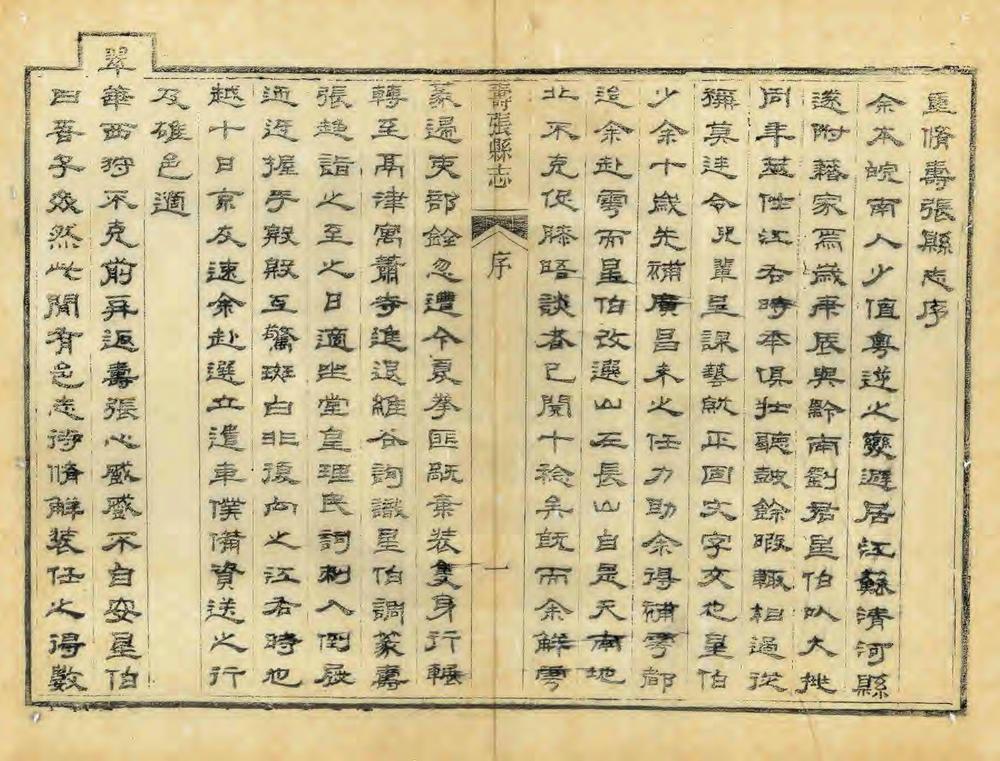 重脩壽張縣志序
余本皖南人少值粵逆之變避居江蘇清河縣
遂附籍家焉歲丙辰與黔南劉君星伯以大挑
同年筮仕江右時本俱壯聽鼓餘暇輒相過從
獼莫逆令兒輩呈課藝就正固文字交也星伯
少余十歲先補廣昌未之任力助余得補雩都
迨余赴雩而星伯改選山左長山自是天南地
北不克促膝晤談者已閱十稔矣旣而余解雩
壽張縣志
序
一
篆過吏部銓忽遭今夏拳匪戹棄裝隻身行輾
轉至鬲津寓蕭寺進退維谷詢識星伯調篆壽
張趨詣之至之日適坐堂皇理民詞刺入倒屣
迎迓握手殷殷互驚斑白非復向之江右時也
越十日京友速余赴選立遣車僕備資送之行
及碓邑適
翠華西狩不克前再返壽張心慼慼不自安星伯
曰吾子㷀然此間有邑志待脩解裝任之得數